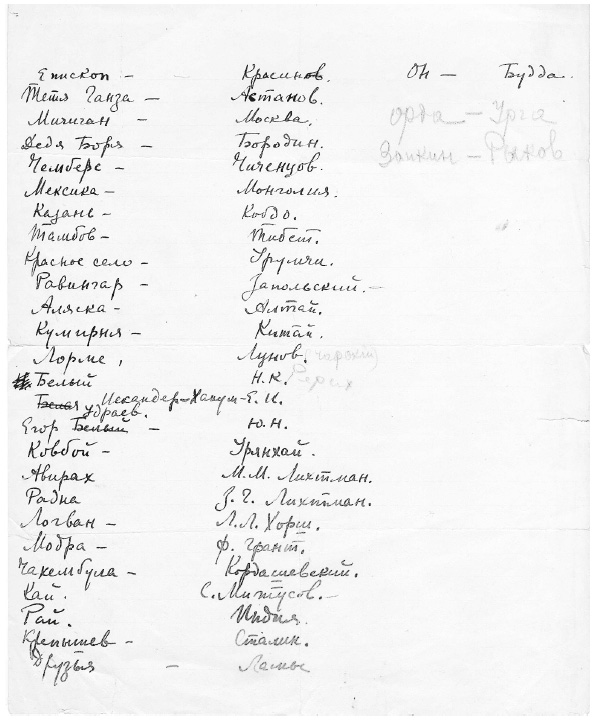 Епископ – Красинов. Он – Будда.
Тетя Ганза – Астанов.
Мичиган – Москва.
Орда – Урга
Дядя Боря – Бородин.
Заикин – Рыков
Чемберс – Чиченцов.
Мексика – Монголия.
Казань – Кобдо.
Тамбов – Тибет.
Красное село – Урумчи.
Равингар – Запольский. –
Аляска – Алтай.
Кумирня – Китай.
Лорме, Лунов. (чарский)
Белый Н.К. Рерих
Белая Искандер-Ханум – Е.И.
Егор Белый Удраев. – Ю.Н.
Ковбой – Урянхай.
Авирах М.М. Лихтман.
Радна З.Г. Лихтман.
Логван – Л.Л. Хорш.
Модра – Ф. Грант.
Чахембула – Кордашевский.
Кай. С. Митусов. –
Рай. Индия.
Крепышев – Сталин.
Друзья – Ламы